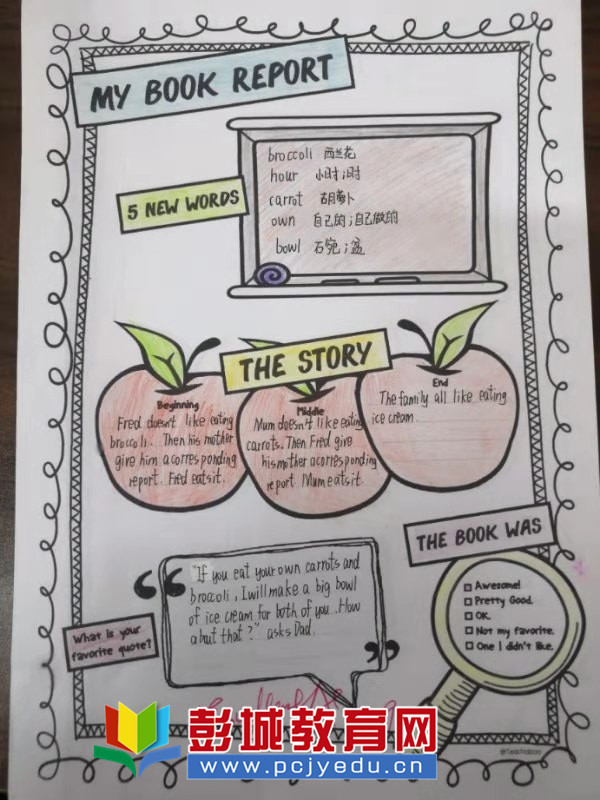 MY BOOK REPORT
5 NEW WORDS
broccoli 西兰花
hour 小时;时
carrot 胡萝卜
own 自己的;自己做的
bowl 石宛;盆
THE STORY
Beginning
Fred doesn't like eating
broccoli. Then his mother
give him a corresponding
report. Fred eats it.
Middle
Mum doesn't like eating
carrots. Then Fred give
his mother a corresponding
report. Mum eats it.
End
The family all like eating
ice cream.
THE BOOK WAS
Awesome!
Pretty Good.
OK.
Not my favorite.
One I didn't like.
What is your
favorite quote?
"If you eat your own carrots and
broccoli, I will make a big bowl
of ice cream for both of you. How
abut that?" asks Dad.
彭城教育网
www.pcjyedu.cn